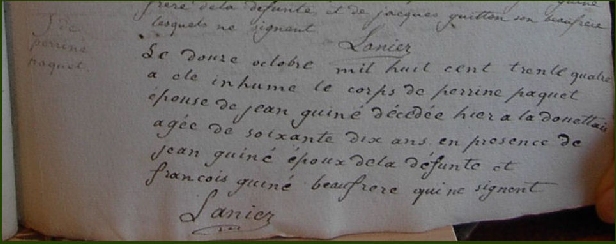 frere de la defunte et de jacques guitton son beaufrere
lesquels ne signent
Lanier
S. de
perrine
paquet
Le douze octobre mil huit cent trente quatre
a ete inhume le corps de perrine paquet
épouse de jean guiné décédée hier a la douettais
agée de soixante dix ans, en presence de
jean guiné époux de la defunte et
francois guiné beaufrere qui ne signent
Lanier